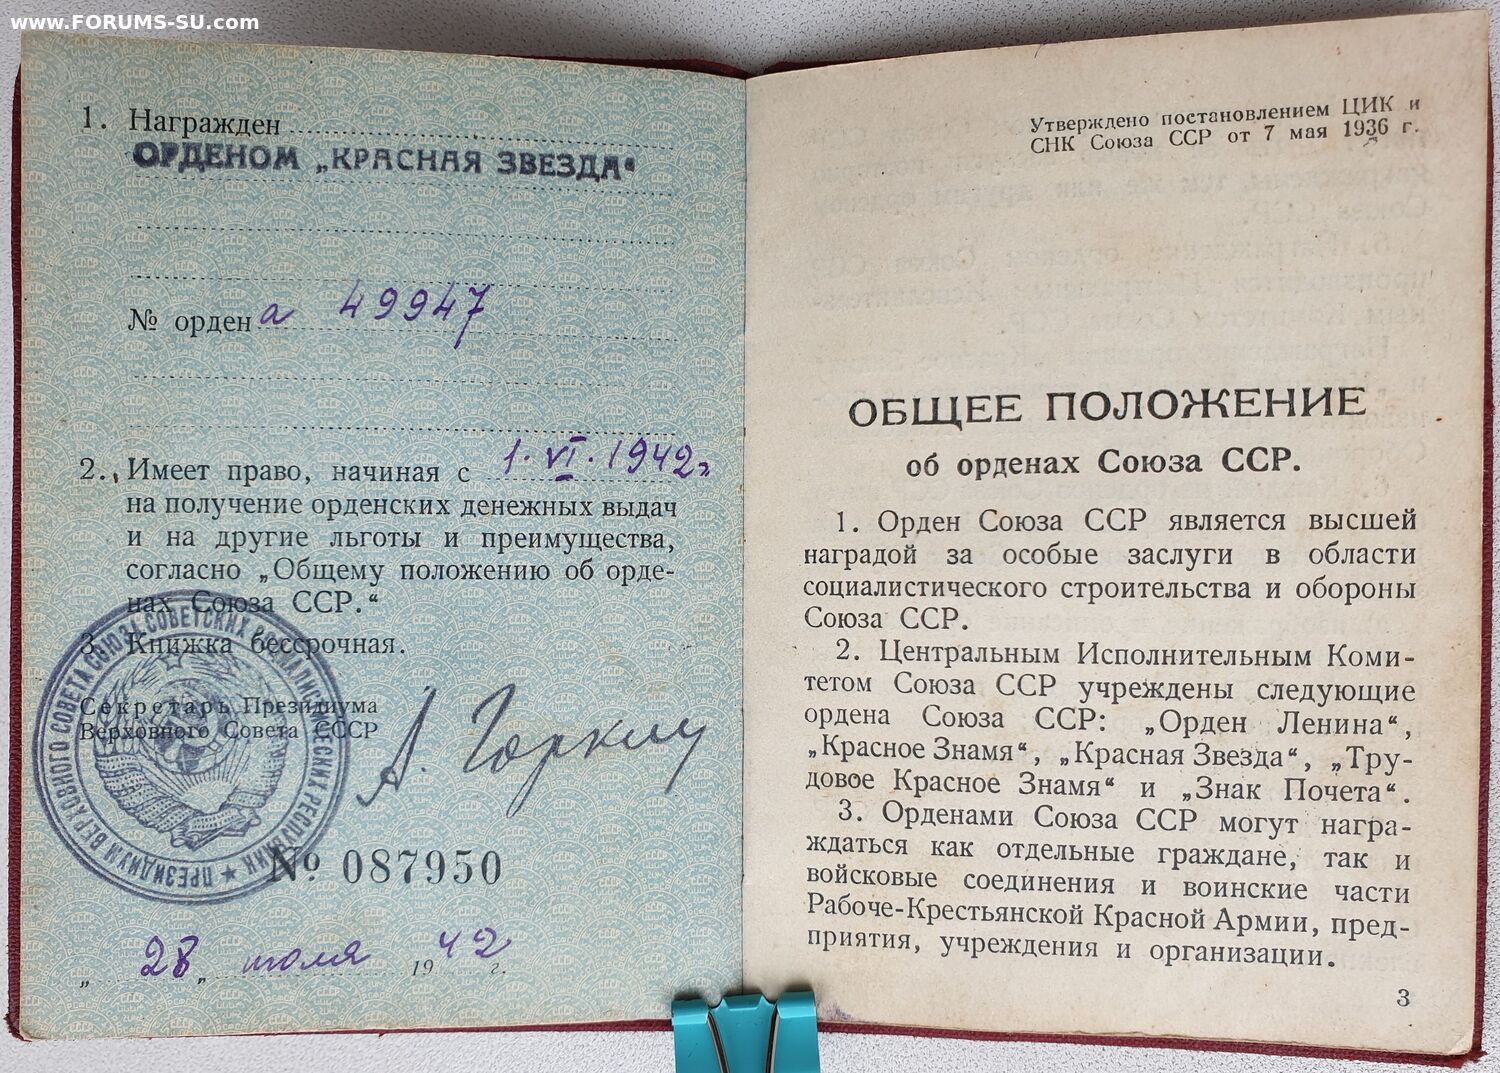 www.FORUMS-SU.com
1. Награжден
ОРДЕНОМ „КРАСНАЯ ЗВЕЗДА“
№ орден а 49947
2. Имеет право, начиная с 1.VI.1942 г.
на получение орденских денежных выдач
и на другие льготы и преимущества,
согласно „Общему положению об орде-
нах Союза ССР.“
3. Книжка бессрочная.
Секретарь Президиума
Верховного Совета СССР
А. Горкин
ПРЕЗИДИУМ ВЕРХОВНОГО СОВЕТА СОЮЗА СОВЕТСКИХ СОЦИАЛИСТИЧЕСКИХ РЕСПУБЛИК
№ 087950
„28„ июля 1942 г.
Утверждено постановлением ЦИК и
СНК Союза ССР от 7 мая 1936 г.
ОБЩЕЕ ПОЛОЖЕНИЕ
об орденах Союза ССР.
1. Орден Союза ССР является высшей
наградой за особые заслуги в области
социалистического строительства и обороны
Союза ССР.
2. Центральным Исполнительным Коми-
тетом Союза ССР учреждены следующие
ордена Союза ССР: „Орден Ленина“,
„Красное Знамя“, „Красная Звезда“, „Тру-
довое Красное Знамя“ и „Знак Почета“.
3. Орденами Союза ССР могут награ-
ждаться как отдельные граждане, так и
войсковые соединения и воинские части
Рабоче-Крестьянской Красной Армии, пред-
приятия, учреждения и организации.
3